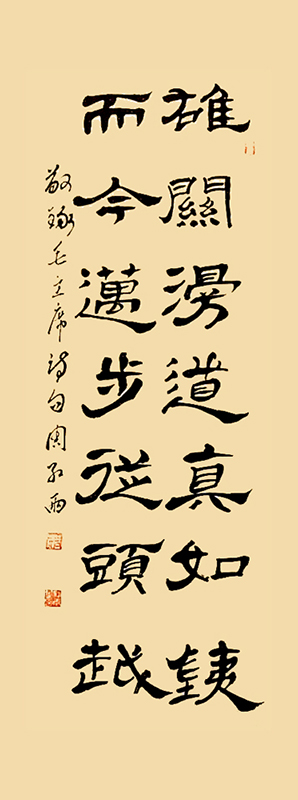 雄關漫道真如鐵
而今邁步從頭越
敬録毛主席詩句